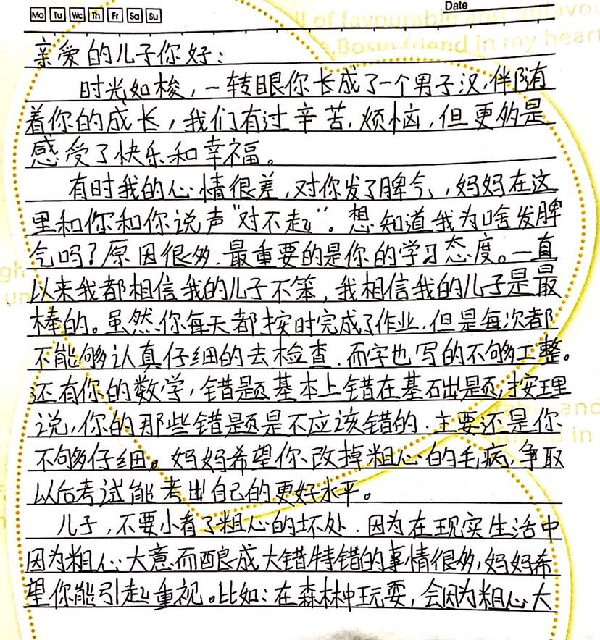 Mo Tu We Th Fr Sa Su
Date
亲爱的儿子你好：
时光如梭，一转眼你长成了一个男子汉，伴随
着你的成长，我们有过辛苦，烦恼，但更多的是
感受了快乐和幸福。
有时我的心情很差，对你发了脾气，妈妈在这
里和你和你说声“对不起”。想知道我为啥发脾
气吗？原因很多，最重要的是你的学习态度。一直
以来我都相信我的儿子不笨，我相信我的儿子是最
棒的。虽然你每天都按时完成了作业，但是每次都
不能够认真仔细的去检查，而字也写的不够工整。
还有你的数学，错题基本上错在基础题，按理
说，你的那些错题是不应该错的，主要还是你
不够仔细。妈妈希望你改掉粗心的毛病，争取
以后考试能考出自己的更好水平。
儿子，不要小看了粗心的坏处，因为在现实生活中
因为粗心大意而酿成大错特错的事情很多，妈妈希
望你能引起重视。比如：在森林中玩耍，会因为粗心大